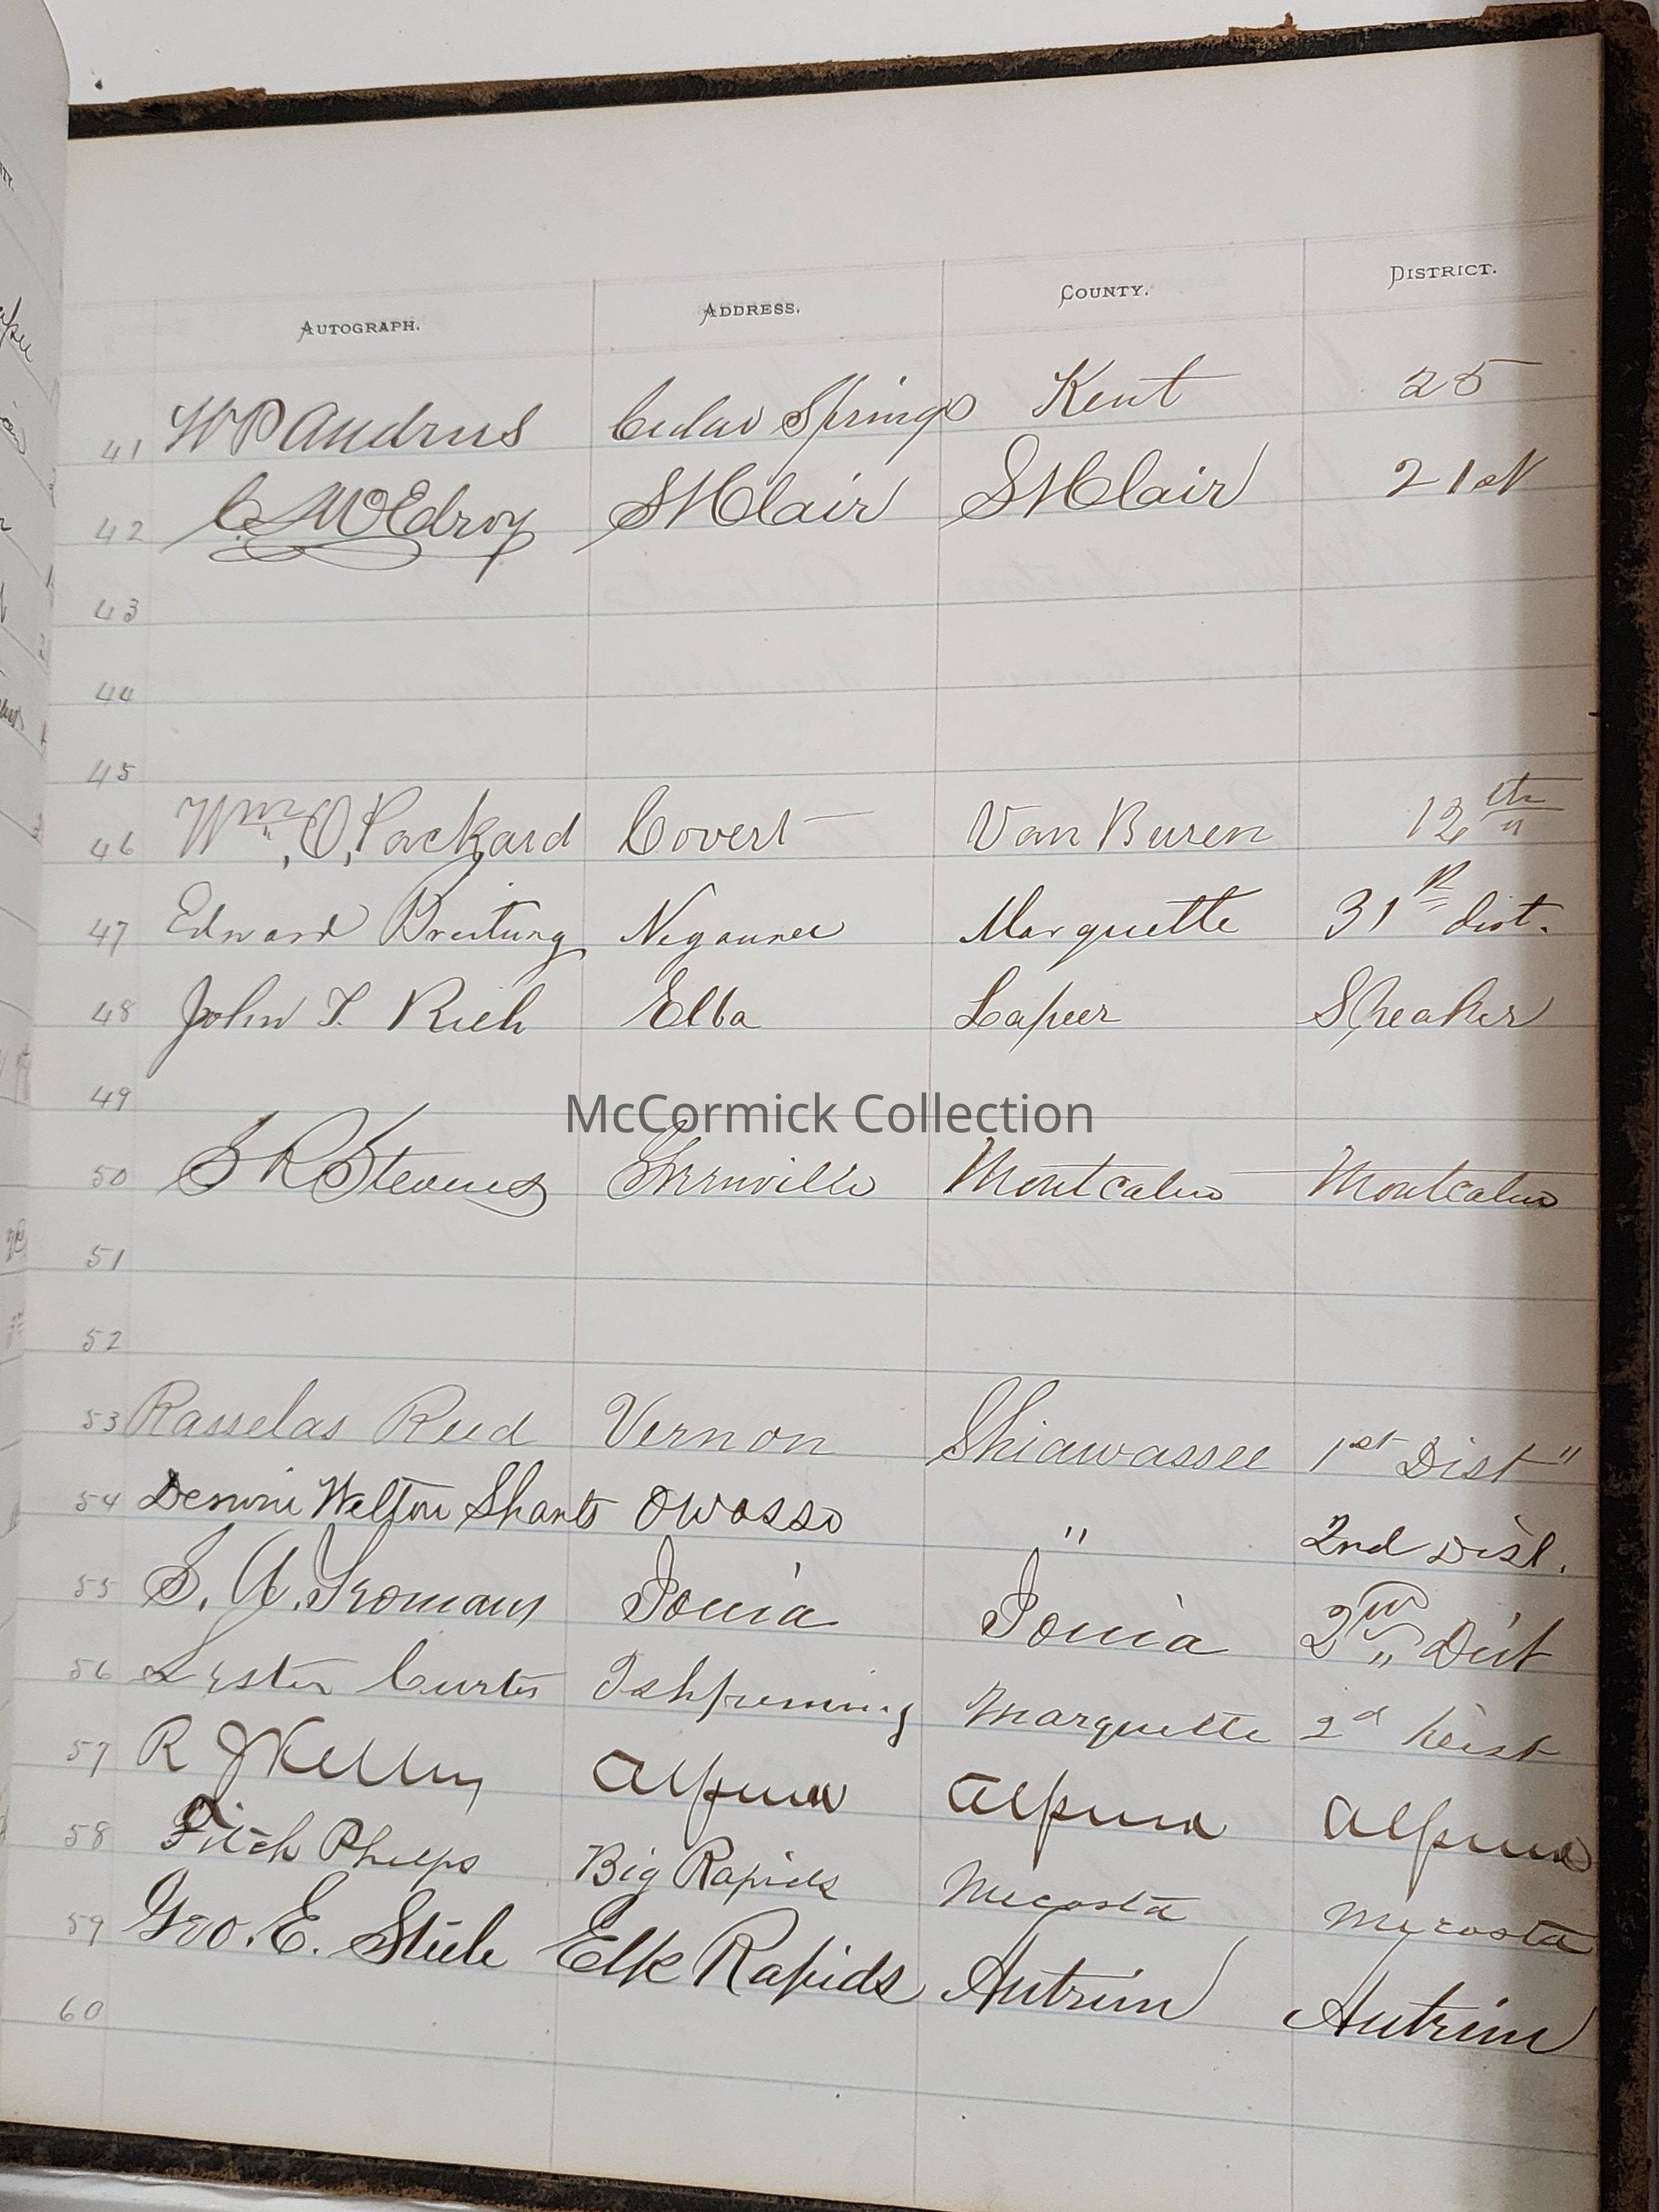 AUTOGRAPH. ADDRESS. COUNTY. DISTRICT.
41 W P Andrus Cedar Springs Kent 25
42 C. McElroy St Clair St Clair 21st
43
44
45
46 Wm, O, Packard Covert Van Buren 12th
47 Edward Breitung Negaunee Marquette 31st dist.
48 John T. Rich Elba Lapeer Speaker
49
McCormick Collection
50 S R Stevens Greenville Montcalm Montcalm
51
52
53 Rasselas Reed Vernon Shiawassee 1st Dist "
54 Welton Owosso " 2nd Dist.
55 S. A. Yeomans Ionia Ionia 2nd Dist
56 Lester Curtis Ishpeming Marquette 2d Dist
57 R J Kelley Alpena Alpena Alpena
58 Fitch Phelps Big Rapids Mecosta Mecosta
59 Geo. E. Steele Elk Rapids Antrim Antrim
60